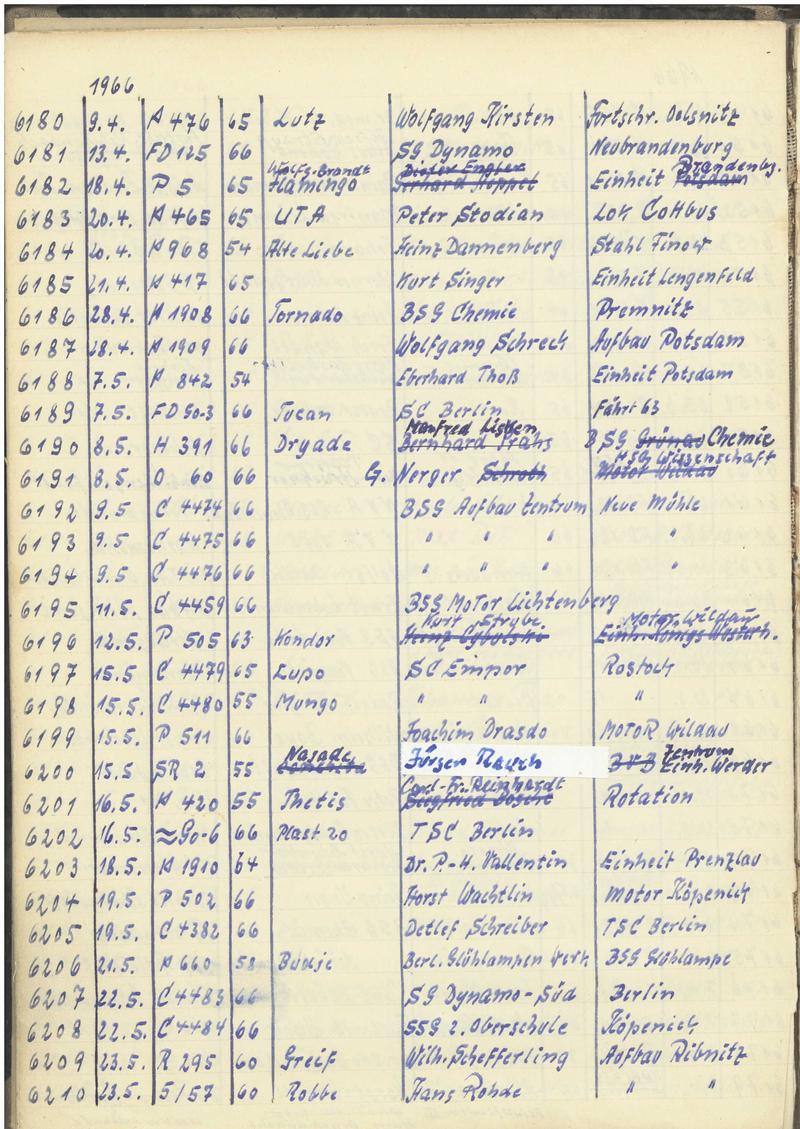 1966
6180 9.4. A 476 65 Lutz Wolfgang Kirsten Fortschr. Oelsnitz
6181 13.4. FD 125 66 SG Dynamo Neubrandenburg
Wolfs-Brandt Dieter Engler Brandenbg.
6182 18.4. P 5 65 Flamingo Einheit Potsdam
6183 20.4. A 465 65 UTA Peter Stodian Lok Cottbus
6184 20.4. A 968 54 Alte Liebe Heinz Dannenberg Stahl Finow
6185 21.4. A 417 65 Kurt Singer Einheit Lengenfeld
6186 28.4. A 1908 66 Tornado BSG Chemie Premnitz
6187 28.4. A 1909 66 Wolfgang Schreck Aufbau Potsdam
6188 7.5. A 842 54 Eberhard Thoß Einheit Potsdam
6189 7.5. FD 50-3 66 Tucan SC Berlin Fährt 63
Manfred
6190 8.5. H 391 66 Dryade Bernhard Prahs BSG Grünau Chemie
HSG Wissenschaft
6191 8.5. O 60 66 G. Nerger Schroth Motor Wildau
6192 9.5 C 4474 66 BSG Aufbau Zentrum Neue Mühle
6193 9.5 C 4475 66 " " " "
6194 9.5 C 4476 66 " " " "
6195 11.5. C 4459 66 BSG Motor Lichtenberg
Kurt Strybe Motor Wildau
6196 12.5. P 505 63 Kondor Heinz Einh. Königs Wusterh.
6197 15.5 C 4479 65 Lupo SC Empor Rostock
6198 15.5. C 4480 55 Mungo " " "
6199 15.5. P 511 66 Joachim Drasdo Motor Wildau
Najade Zentrum
6200 15.5 SR 2 55 Jürgen Rauch Einh. Werder
Carl-Fr. Reinhardt
6201 16.5. A 420 55 Thetis Siegfried Rotation
6202 16.5. ≈90-6 66 Plast 20 TSC Berlin
6203 18.5. A 1910 64 Dr. P.-H. Vallentin Einheit Prenzlau
6204 19.5. P 502 66 Horst Wachtlin Motor Köpenick
6205 19.5. C 4382 66 Detlef Schreiber TSC Berlin
6206 21.5. A 660 58 Budje Berl. Glühlampen Werk BSG Glühlampe
6207 22.5. C 4483 66 SG Dynamo-Süd Berlin
6208 22.5. C 4484 66 SSG 2. Oberschule Köpenick
6209 23.5. R 295 60 Greif Wilh. Schefferling Aufbau Ribnitz
6210 23.5. 5/57 60 Robbe Hans Rohde " "